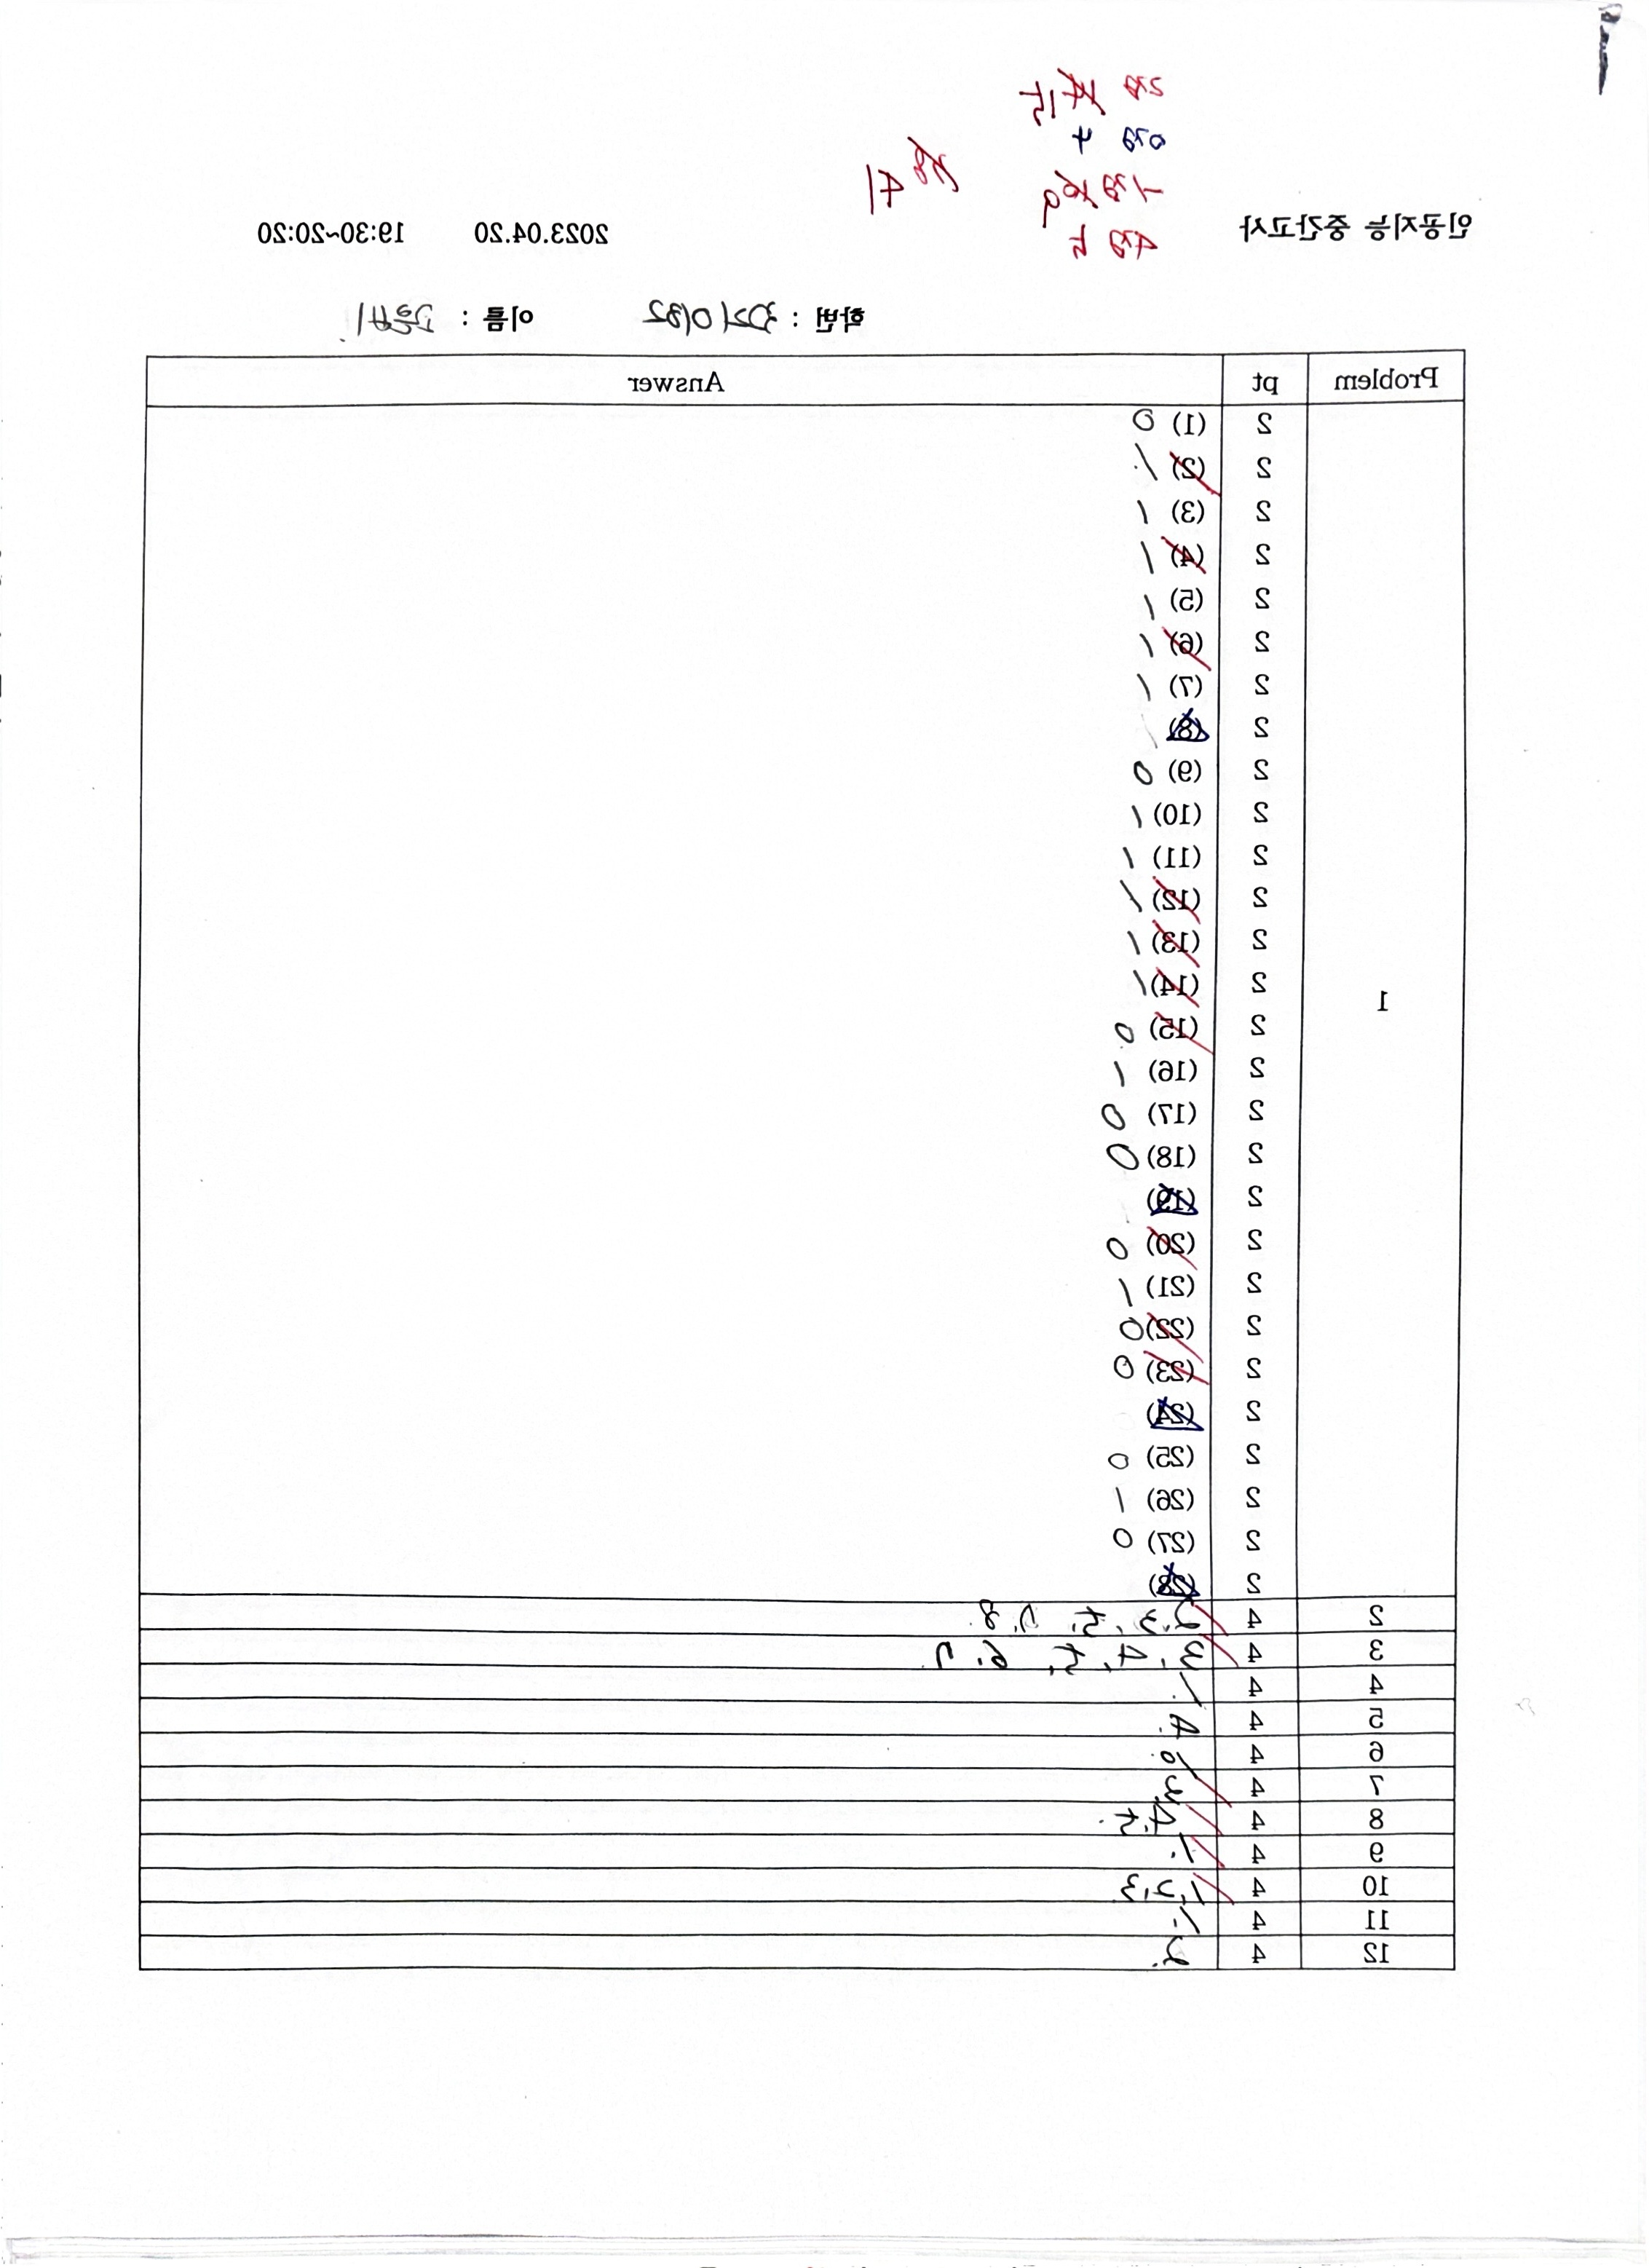 2점 15
0점 4
-1점 9
4점 5
41
인공지능 중간고사 2023.04.20 19:30~20:20
학번 : 30210182 이름 :
Problem pt Answer
1
2 (1) 0
2 (2) 1
2 (3) 1
2 (4) 1
2 (5) 1
2 (6) 1
2 (7) 1
2 (8)
2 (9) 0
2 (10) 1
2 (11) 1
2 (12) 1
2 (13) 1
2 (14) 1
2 (15) 0
2 (16) 1
2 (17) 0
2 (18) 0
2 (19)
2 (20) 0
2 (21) 1
2 (22) 0
2 (23) 0
2 (24)
2 (25) 0
2 (26) 1
2 (27) 0
2 (28)
2 4 2,3,5,7,8
3 4 3,4,5,6,7
4 4 1.
5 4 4.
6 4 10.
7 4 3
8 4 4,5.
9 4 1.
10 4 1,2,3
11 4 1.
12 4 2.